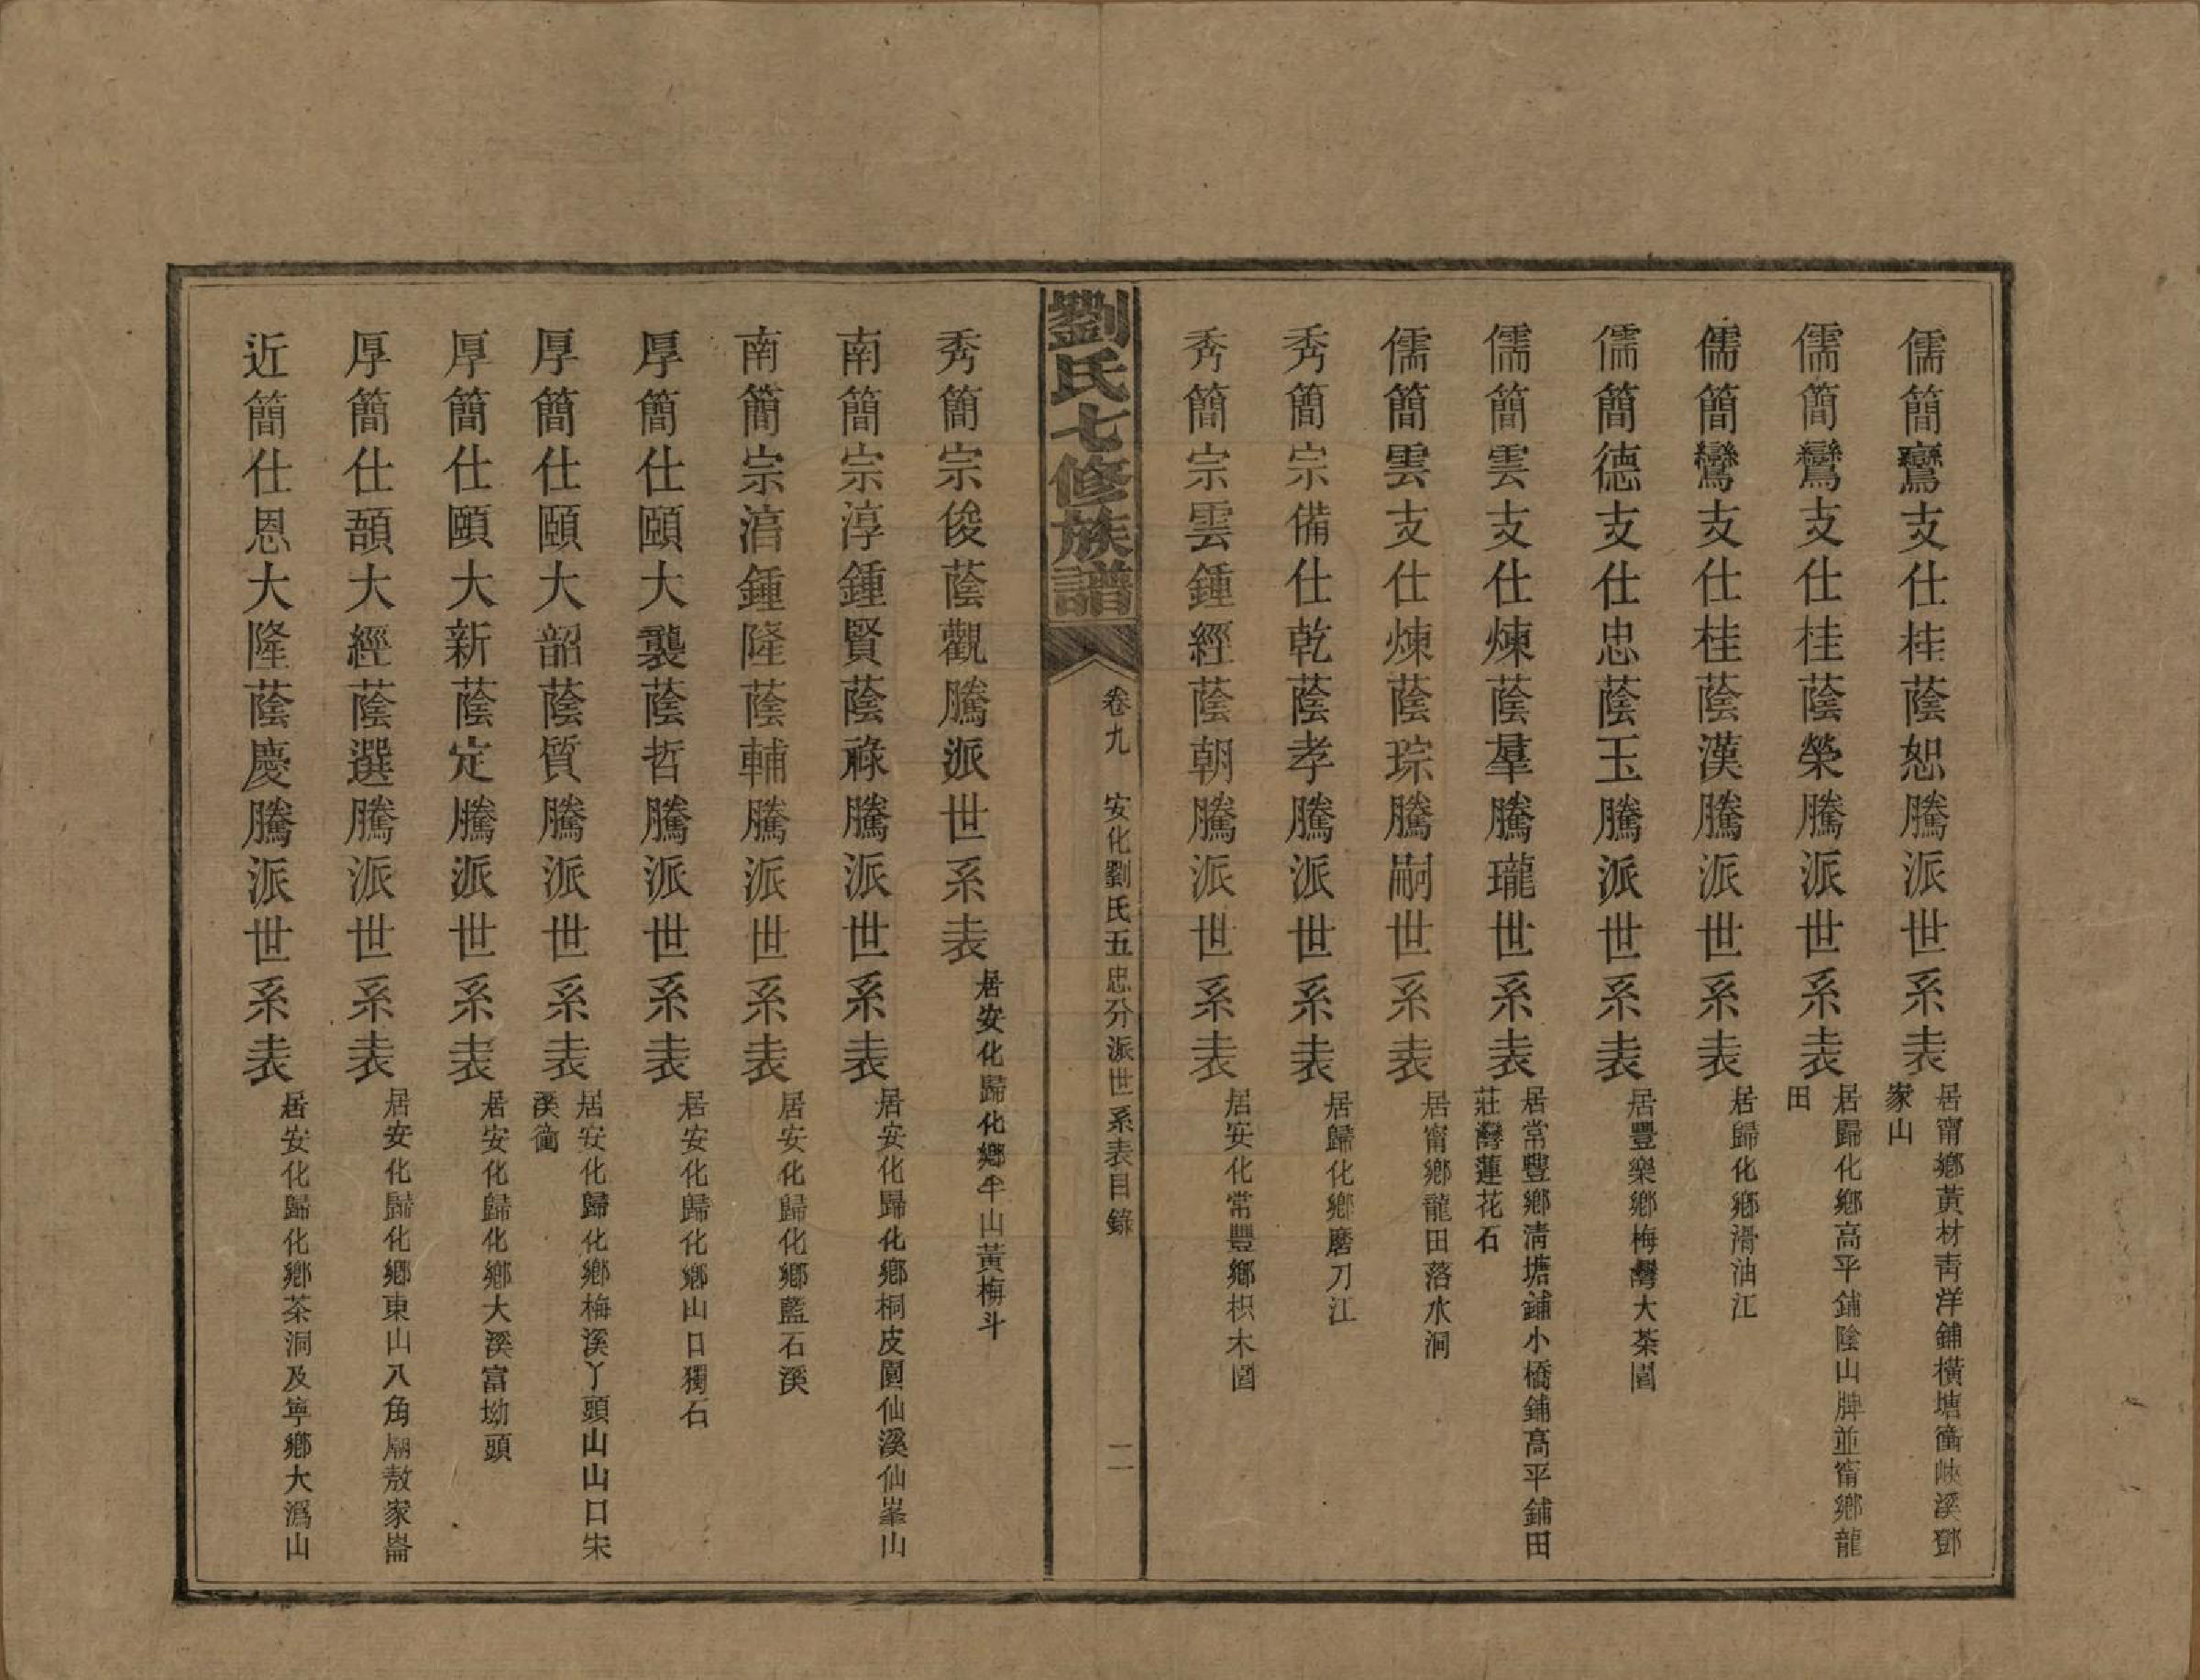 儒簡鸞支仕桂蔭恕騰派世系表 居甯鄉黃材靑洋鋪橫塘衝峽溪鄧家山
儒簡鸞支仕桂蔭榮騰派世系表 居歸化鄉高平鋪陰山脾並甯鄉龍田
儒簡鸞支仕桂蔭漢騰派世系表 居歸化鄉滑油江
儒簡德支仕忠蔭玉騰派世系表 居豐樂鄉梅灣大茶園
儒簡雲支仕煉蔭羣騰瓏世系表 居常豐鄉淸塘鋪小橋鋪高平鋪田莊灣蓮花石
儒簡雲支仕煉蔭琮騰嗣世系表 居甯鄉龍田落水洞
秀簡宗備仕乾蔭孝騰派世系表 居歸化鄉磨刀江
秀簡宗雲鍾經蔭朝騰派世系表 居安化常豐鄉枳木園
劉氏七修族譜 卷九 安化劉氏五忠分派世系表目錄 二
秀簡宗俊蔭觀騰派世系表 居安化歸化鄉半山黃梅斗
南簡宗淳鍾賢蔭祿騰派世系表 居安化歸化鄉桐皮園仙溪仙峯山
南簡宗湻鍾隆蔭輔騰派世系表 居安化歸化鄉藍石溪
厚簡仕頤大襲蔭哲騰派世系表 居安化歸化鄉山口獨石
厚簡仕頤大韶蔭質騰派世系表 居安化歸化鄉梅溪丫頭山山口宋溪衝
厚簡仕頤大新蔭定騰派世系表 居安化歸化鄉大溪富坳頭
厚簡仕頡大經蔭選騰派世系表 居安化歸化鄉東山八角廟敖家崙
近簡仕恩大隆蔭慶騰派世系表 居安化歸化鄉茶洞及寧鄉大溈山